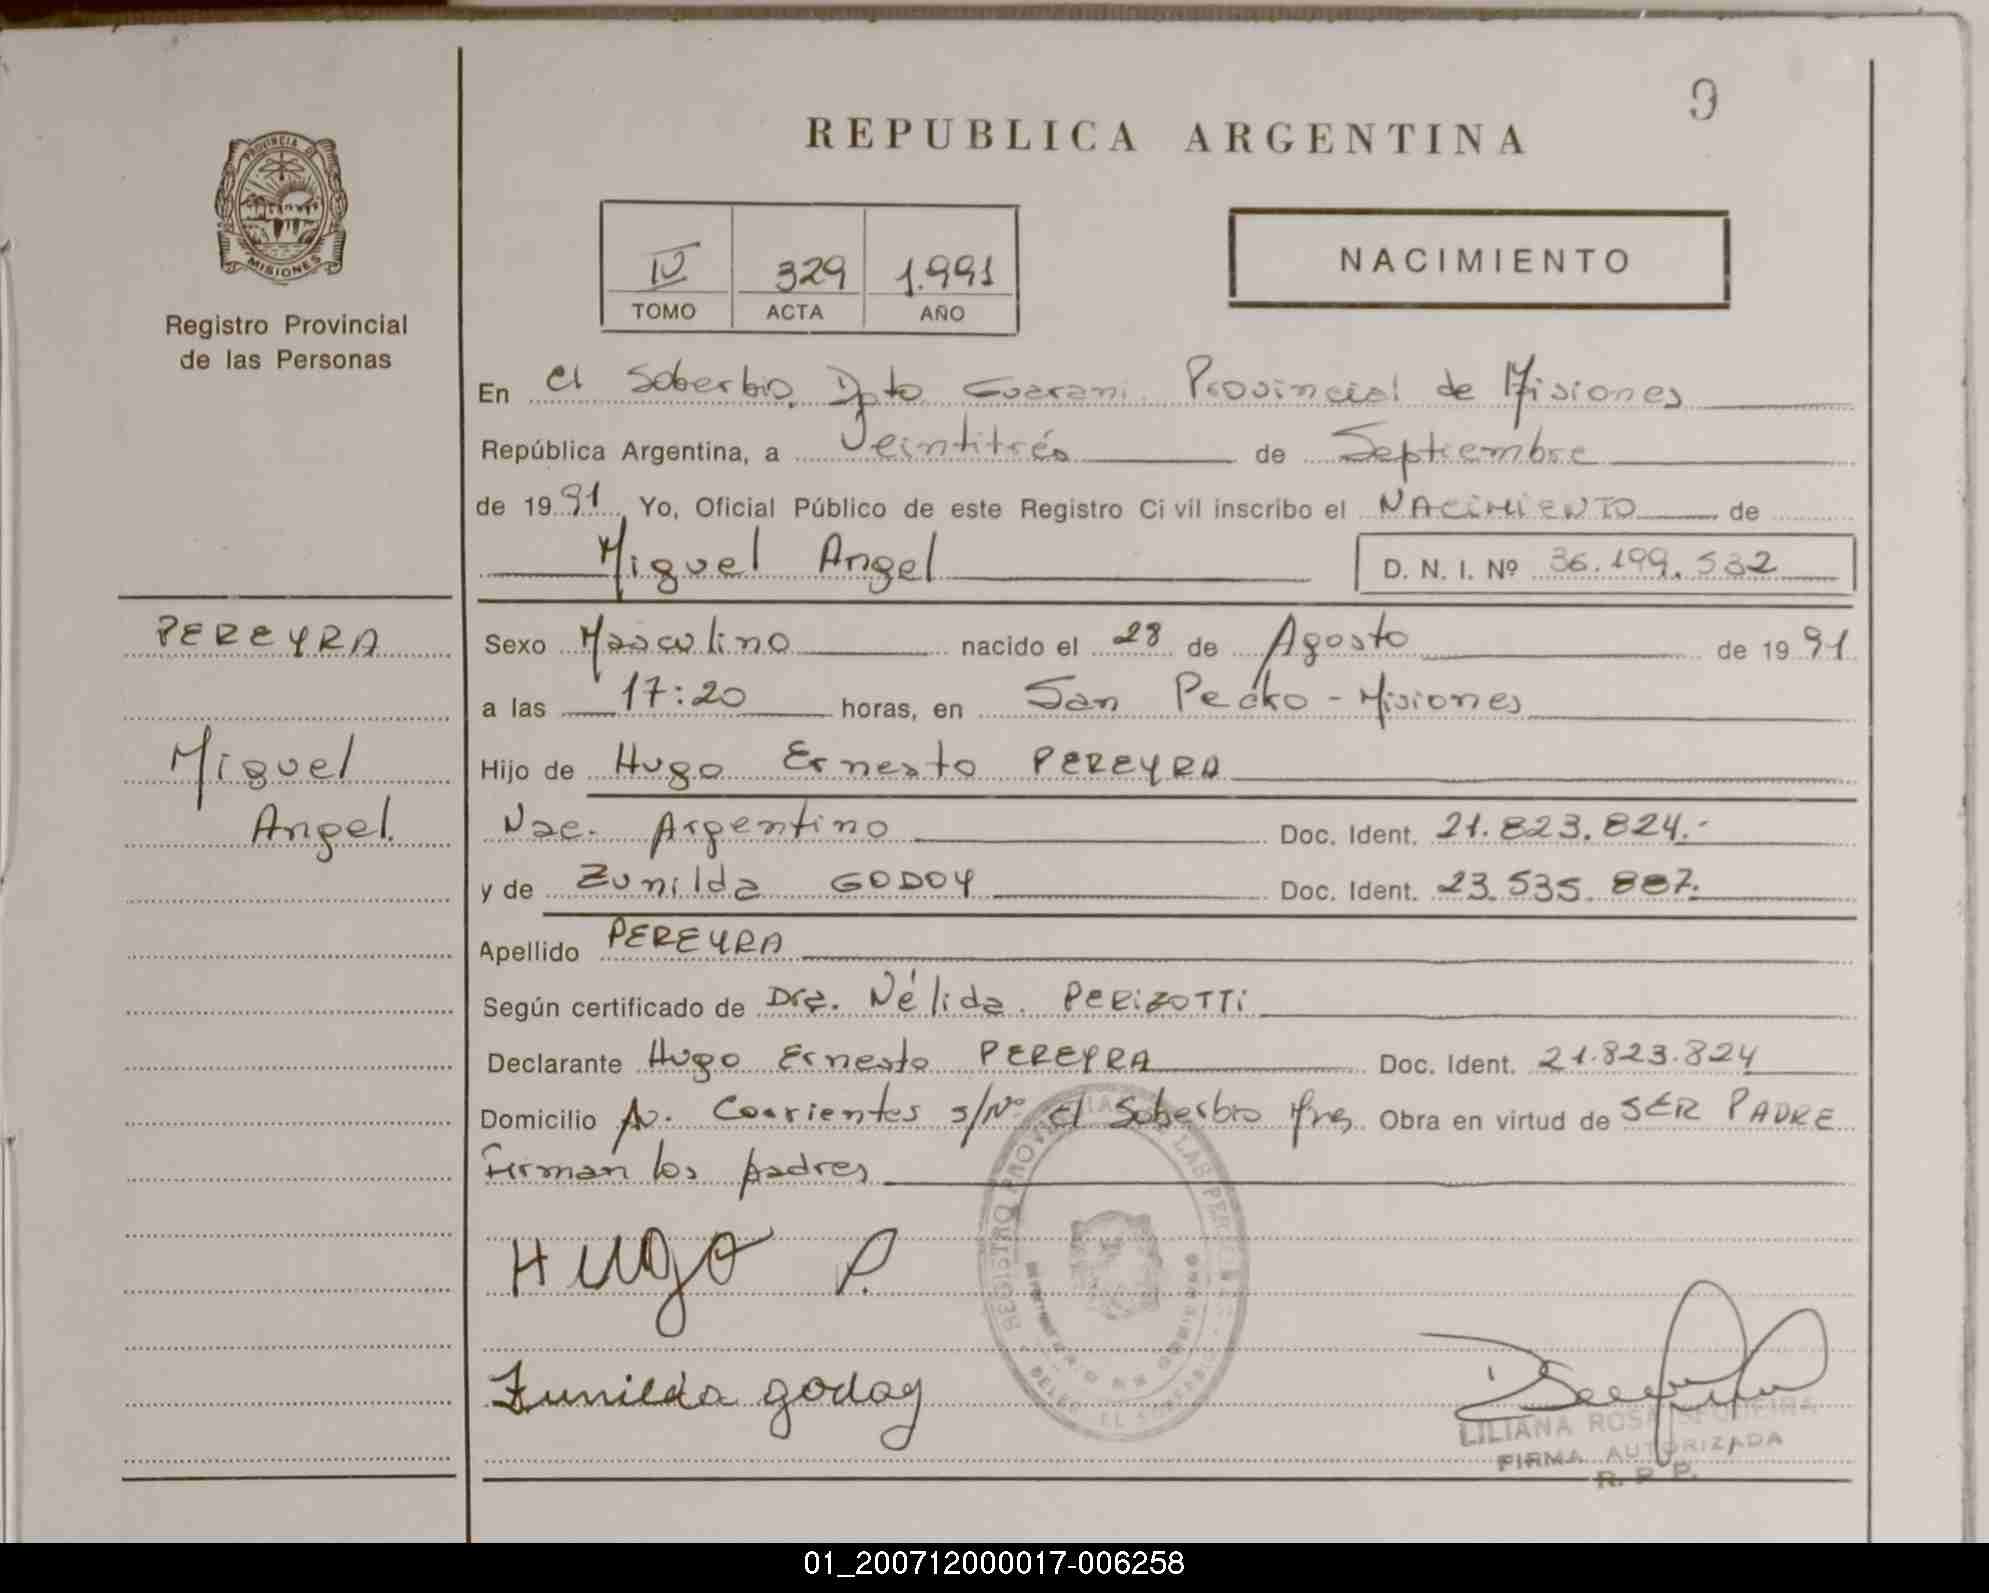 9
REPUBLICA ARGENTINA
PROVINCIA D
MISIONES
Registro Provincial
de las Personas
IV 329 1.991
TOMO ACTA AÑO
NACIMIENTO
En El Soberbio, Dpto Guarani Provincial de Misiones
República Argentina, a Veintitrés de Septiembre
de 1991 Yo, Oficial Público de este Registro Civil inscribo el NACIMIENTO de
Miguel Angel D. N. I. Nº 36.199.532
PEREYRA
Miguel
Angel.
Sexo Masculino nacido el 28 de Agosto de 1991
a las 17:20 horas, en San Pedro - Misiones
Hijo de Hugo Ernesto PEREYRA
Nac. Argentino Doc. Ident. 21.823.824.-
y de Zunilda GODOY Doc. Ident. 23.535.887.
Apellido PEREYRA
Según certificado de Dra. Nélida PERIZOTTI
Declarante Hugo Ernesto PEREYRA Doc. Ident. 21.823.824
Domicilio Av. Corrientes s/Nº El Soberbio Mnes. Obra en virtud de SER PADRE
Firman los padres
Hugo P.
Zunilda godoy
REGISTRO PROVINCIAL DE LAS PER
DELEG. EL SOBERBIO
LILIANA ROSA SEQUEIRA
FIRMA AUTORIZADA
R. P. P.
01_200712000017-006258